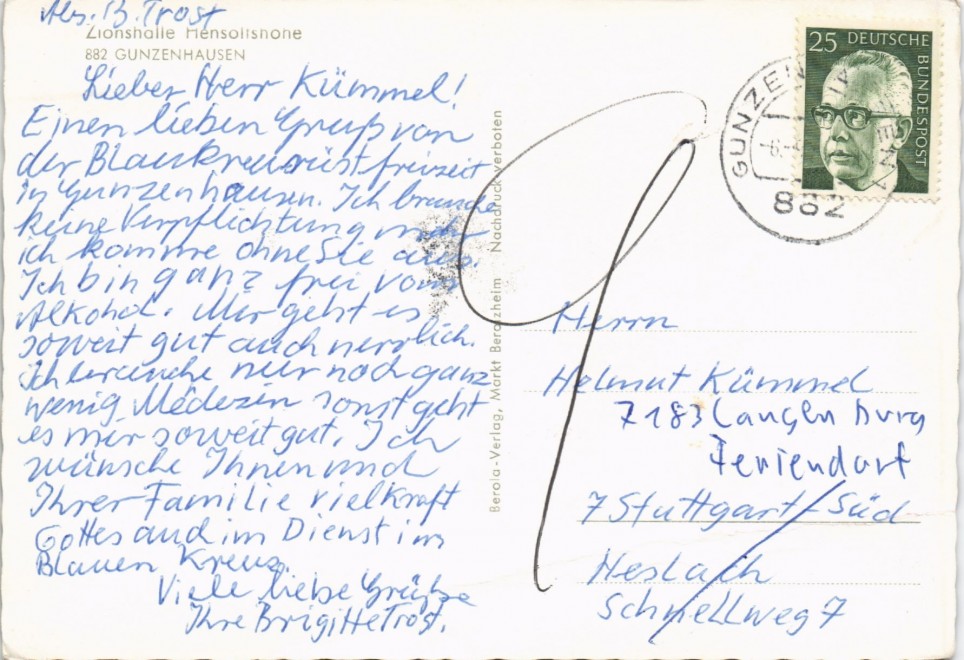 Abs. B. Trost
Zionshalle Hensoltshöhe
882 GUNZENHAUSEN
Lieber Herr Kümmel!
Einen lieben Gruß von
der Blaukreuzrüstfreizeit
in Gunzenhausen. Ich brauche
keine Verpflichtung mehr
ich komme ohne Sie aus.
Ich bin ganz frei vom
Alkohol. Mir geht es
soweit gut auch nervlich.
Ich brauche nur noch ganz
wenig Medezin sonst geht
es mir soweit gut. Ich
wünsche Ihnen und
Ihrer Familie vielkraft
Gottes auch im Dienst im
Blauen Kreuz.
Viele liebe Grüße
Ihre Brigitte Trost.
Berola-Verlag, Markt Berolzheim Nachdruck verboten
25 DEUTSCHE
BUNDESPOST
GUNZEN
882
Herrn
Helmut Kümmel
7183 Langenburg
Feriendorf
7 Stuttgart-Süd
Heslach
Schnellweg 7